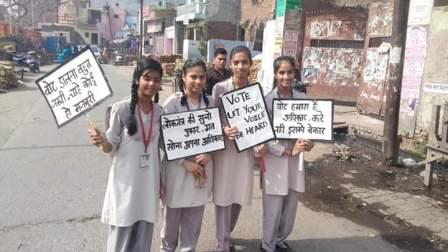 वोट डालना बहुत
जरुरी चाहे कोई
हो मजबूरी
लोकतंत्र की सुनो
पुकार, मत
खोना अपना अधिकार
VOTE
LET YOUR VOICE
BE HEARD!
वोट हमारा है
अधिकार, करे
नहीं इसको बेकार